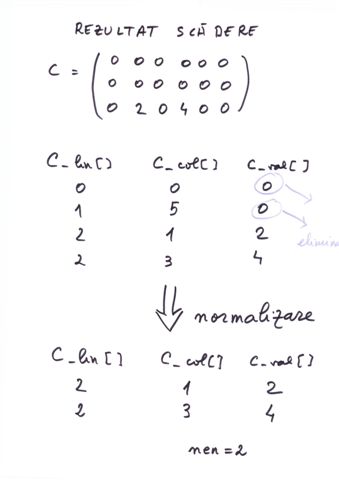 REZULTAT SCĂDERE
0 0 0 0 0 0
C = 0 0 0 0 0 0
0 2 0 4 0 0
C_lin[] C_col[] C_val[]
0 0 0
1 5 0
2 1 2
2 3 4
⇓ normalizare
C_lin[] C_col[] C_val[]
2 1 2
2 3 4
nen = 2